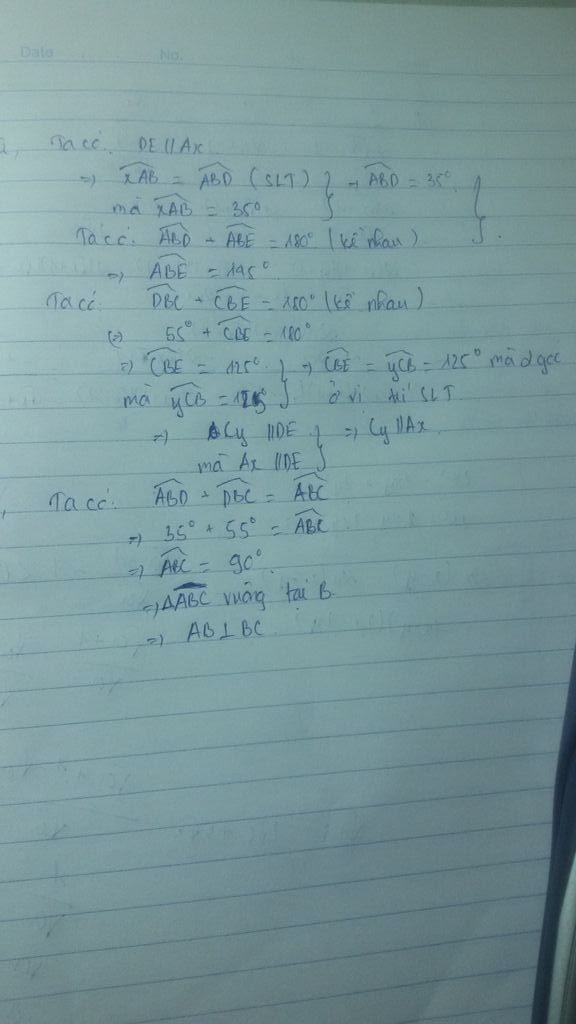 Date No.
a, Ta có: DE // Ax
=> xAB = ABD (SLT) } => ABD = 35° }
mà xAB = 35°
Ta có: ABD + ABE = 180° (kề nhau)
=> ABE = 145°
Ta có: DBC + CBE = 180° (kề nhau)
(=) 55° + CBE = 180°
=> CBE = 125° } => CBE = yCB = 125° mà 2 góc
mà yCB = 125° ở vị trí SLT
=> Cy // DE } => Cy // Ax
mà Ax // DE
, Ta có: ABD + DBC = ABC
=> 35° + 55° = ABC
=> ABC = 90°
=> ΔABC vuông tại B.
=> AB ⊥ BC